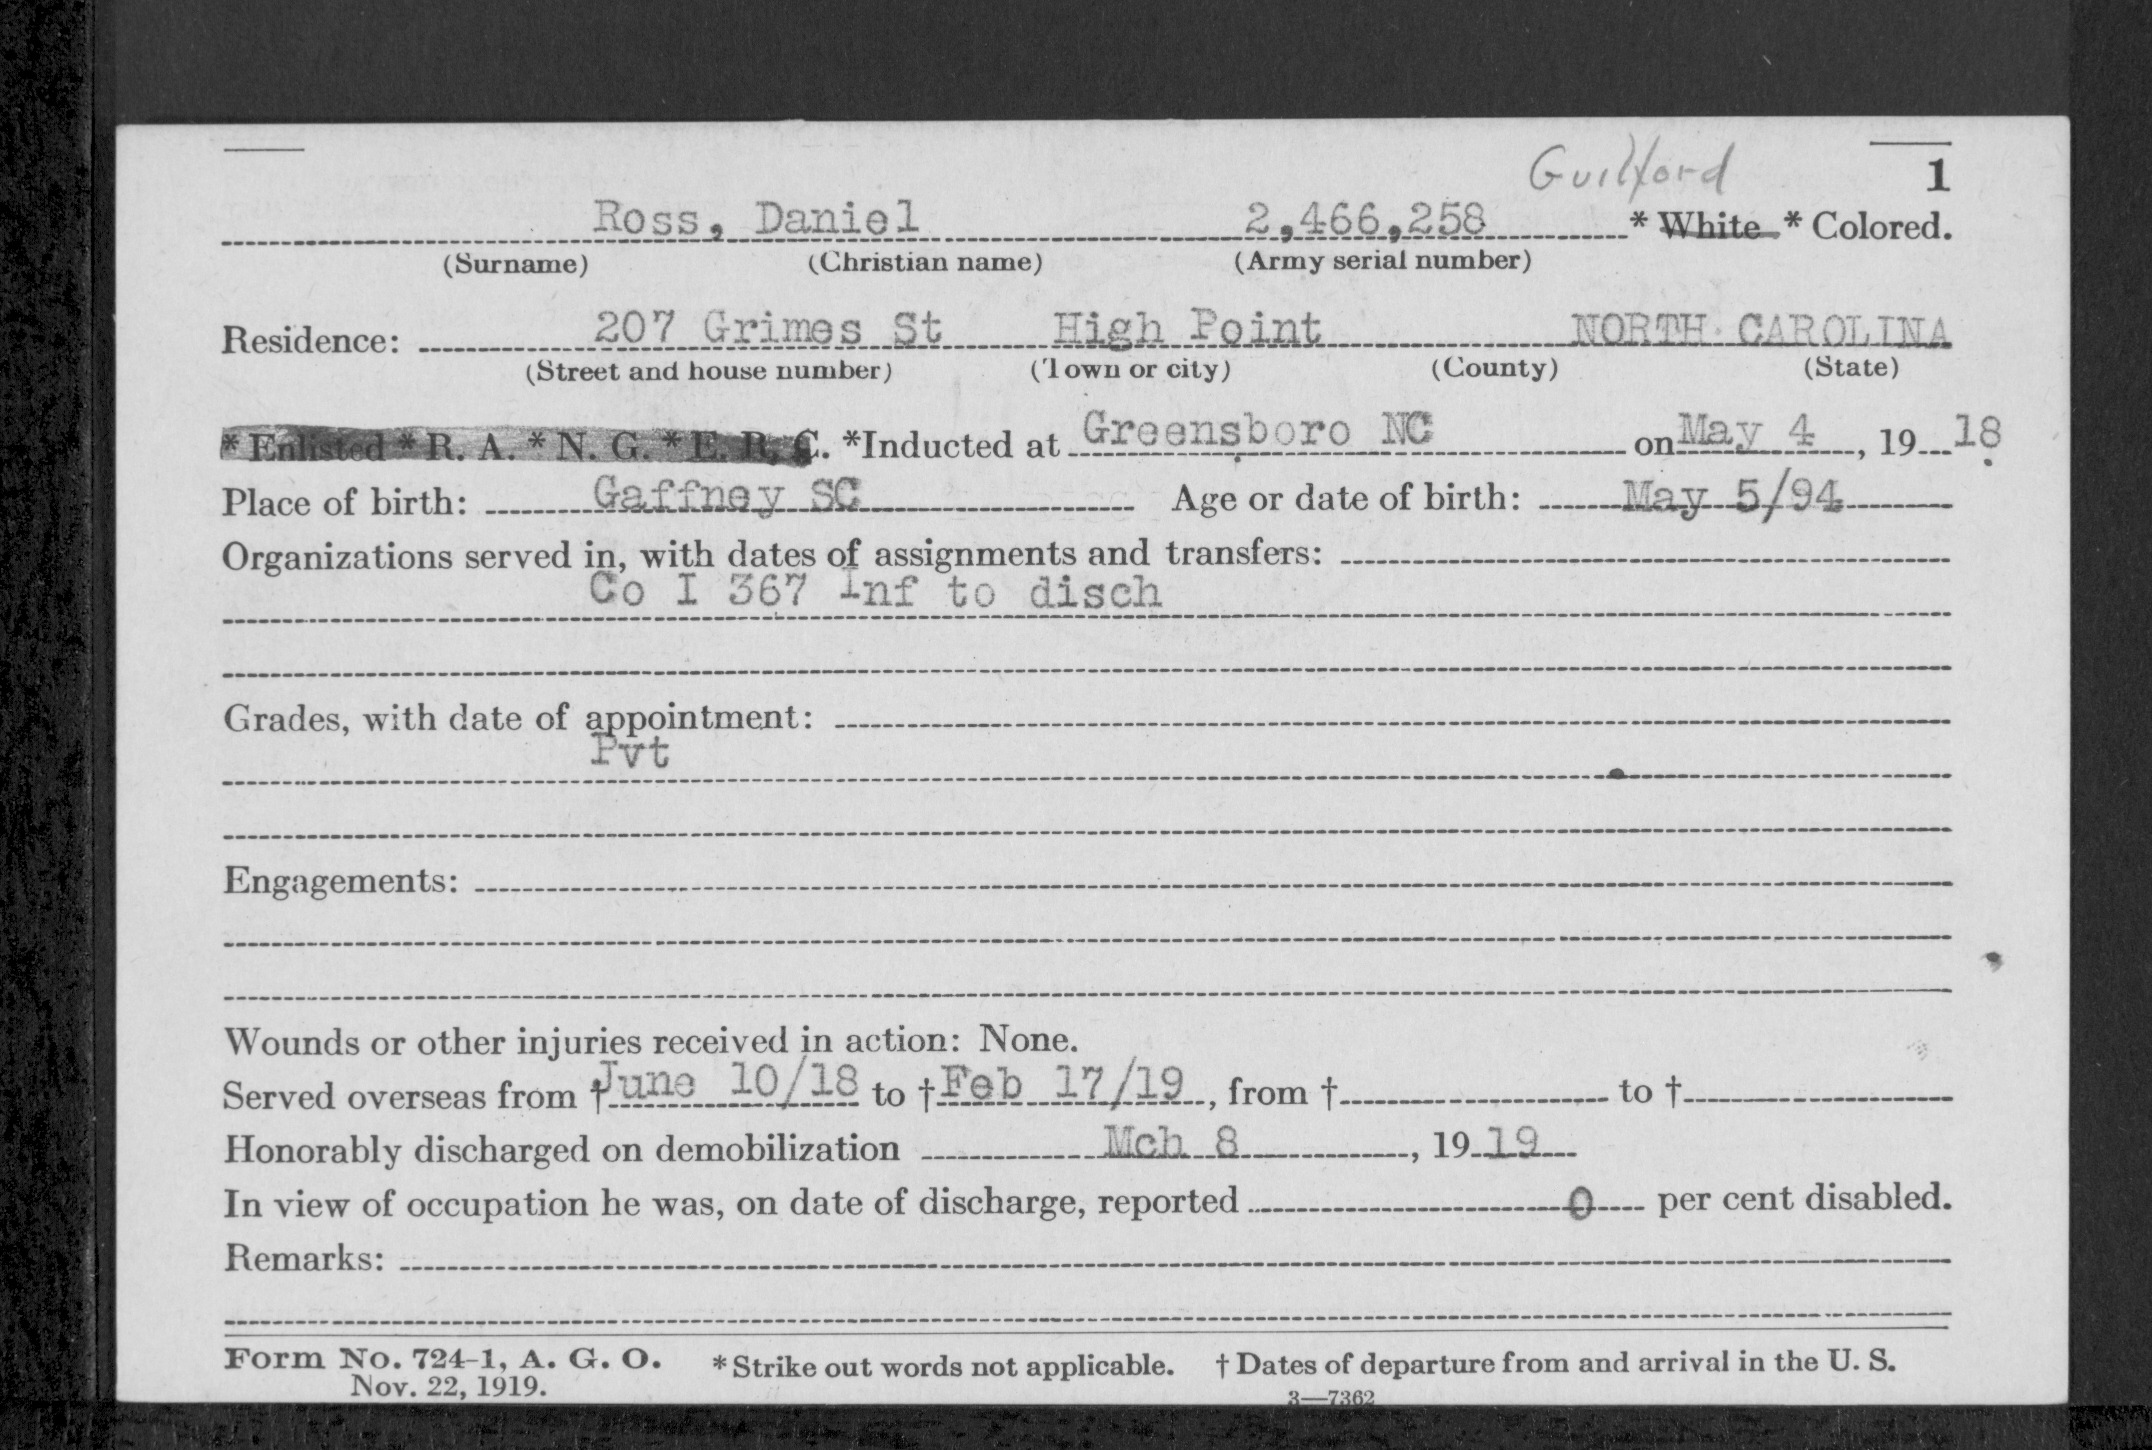 Guilford
1
Ross, Daniel 2,466,258 * White * Colored.
(Surname) (Christian name) (Army serial number)
Residence: 207 Grimes St High Point NORTH CAROLINA
(Street and house number) (Town or city) (County) (State)
* Enlisted * R. A. * N. G. * E. R. C. *Inducted at Greensboro NC on May 4, 19 18
Place of birth: Gaffney SC Age or date of birth: May 5/94
Organizations served in, with dates of assignments and transfers:
Co I 367 Inf to disch
Grades, with date of appointment:
Pvt
Engagements:
Wounds or other injuries received in action: None.
Served overseas from † June 10/18 to † Feb 17/19, from † to †
Honorably discharged on demobilization Mch 8, 19 19
In view of occupation he was, on date of discharge, reported 0 per cent disabled.
Remarks:
Form No. 724-1, A. G. O. * Strike out words not applicable. † Dates of departure from and arrival in the U. S.
Nov. 22, 1919. 3—7362